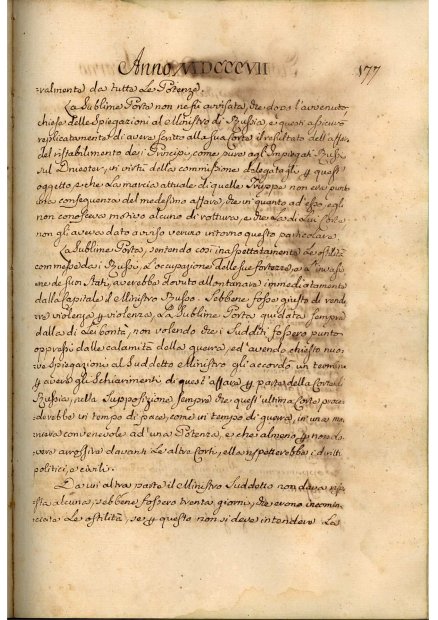 Anno MDCCCVII 177
valmente da tutte Le Potenze.
La Sublime Porta non ne fù avvisata, che dopo l'avvenuto
chiese delle Spiegazioni al Ministro di Russia, e questi assicurò
replicatamente di avere scritto alla sua Corte il resultato dell'affare
del ristabilimento dei Principi, come pure agl'Impiegati Russi
sul Dniester, in virtù della commissione delegatagli p questo
oggetto, e che La marcia attuale di quelle Truppe non era punto
una conseguenza del medesimo affare, che in quanto ad esso egli
non conosceva motivo alcuno di rottura, e che La di Lui Corte
non gli aveva dato avviso veruno intorno questo particolare.
La Sublime Porta, sentendo così inaspettatamente le ostilità
commesse dai Russi, L'occupazione delle sue fortezze, e l'invasione
de suoi Stati, averebbe dovuto allontanare immediatamente
dalla Capitale il Ministro Russo. Sebbene fosse giusto di rendere
violenza p violenza, La Sublime Porta guidata sempre
dalla di Lei bontà, non volendo che i Sudditi fossero punto
oppressi dalle calamità della guerra, ed avendo chiesto nuove
Spiegazioni al Suddetto Ministro gli accordò un termine
p avere gli Schiarimenti di quest'affare p parte della Corte di
Russia, nella Supposizione sempre che quest'ultima Corte procederebbe
in tempo di pace, come in tempo di guerra, in una maniera
convenevole ad una Potenza, e che almeno p non dovere
arrossire davanti Le altre Corti, ella rispetterebbe i diritti
politici, e civili.
Da un'altra parte il Ministro Suddetto non dava risposta
alcuna, sebbene fossero trenta giorni, che erono incominciate
Le ostilità, se p questo non si deve intendere La